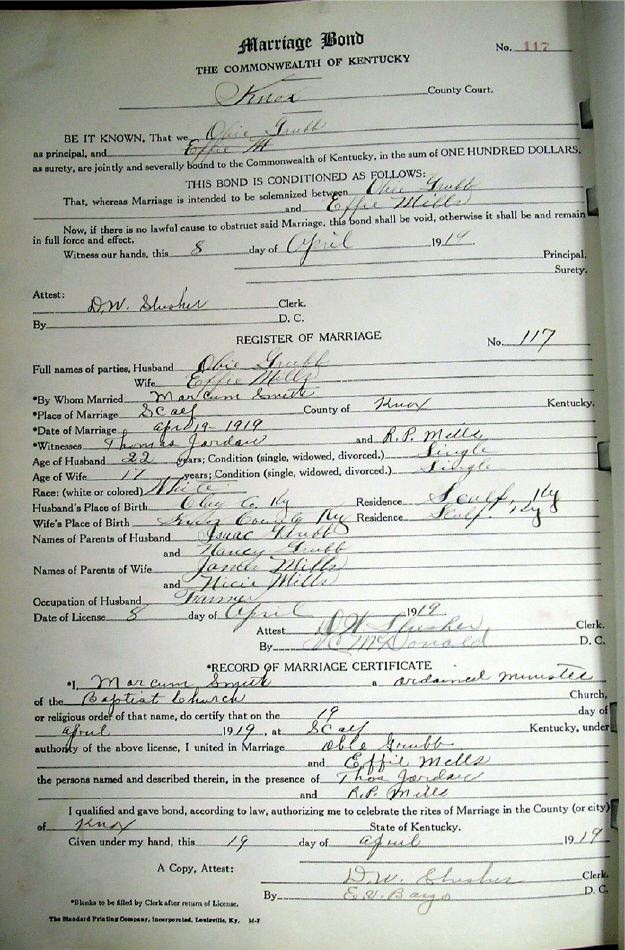 Marriage Bond
No. 117
THE COMMONWEALTH OF KENTUCKY
Knox County Court.
BE IT KNOWN, That we Obie Grubb
as principal, and Effie M
as surety, are jointly and severally bound to the Commonwealth of Kentucky, in the sum of ONE HUNDRED DOLLARS.
THIS BOND IS CONDITIONED AS FOLLOWS:
That, whereas Marriage is intended to be solemnized between Obie Grubb
and Effie Mills
Now, if there is no lawful cause to obstruct said Marriage, this bond shall be void, otherwise it shall be and remain
in full force and effect.
Witness our hands, this 8 day of April 1919
Principal.
Surety.
Attest:
D.W. Slusher Clerk.
By D. C.
REGISTER OF MARRIAGE
No. 117
Full names of parties, Husband Obie Grubb
Wife Effie Mills
*By Whom Married Marcum Smith
*Place of Marriage Scalf County of Knox Kentucky.
*Date of Marriage Apr 19-1919
*Witnesses Thomas Jordan and R.P. Mills
Age of Husband 22 years; Condition (single, widowed, divorced.) Single
Age of Wife 17 years; Condition (single, widowed, divorced.) Single
Race: (white or colored) White
Husband's Place of Birth Clay Co. Ky Residence Scalf, Ky
Wife's Place of Birth County Ky Residence Scalf. Ky
Names of Parents of Husband Isaac Grubb
and Nancy Grubb
Names of Parents of Wife James Mills
and Nicie Mills
Occupation of Husband Farmer
Date of License 8 day of April 1919.
Attest D W Slusher Clerk.
By McDonald D. C.
*RECORD OF MARRIAGE CERTIFICATE
*I, Marcum Smith a ordained minister
of the Baptist Church Church,
or religious order of that name, do certify that on the 19 day of
April 1919, at Scalf Kentucky, under
authority of the above license, I united in Marriage Obie Grubb
and Effie Mills
the persons named and described therein, in the presence of Thos Jordan
and R.P. Mills
I qualified and gave bond, according to law, authorizing me to celebrate the rites of Marriage in the County (or city)
of Knox State of Kentucky.
Given under my hand, this 19 day of April 1919
A Copy, Attest: D.W. Slusher Clerk,
By D. C.
*Blanks to be filled by Clerk after return of License.
The Standard Printing Company, Incorporated, Louisville, Ky. M-7